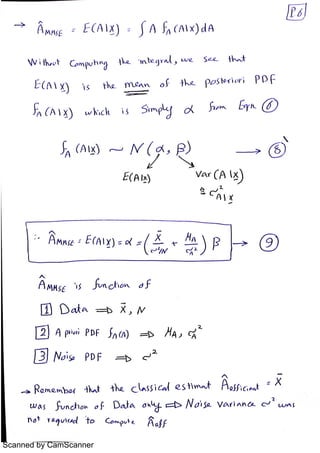 P6
→ Â_MMSE = E(A|x) = ∫ A f_A(A|x) dA
Without Computing the integral, we see that
E(A|x) is the mean of the posteriori PDF
f_A(A|x) which is Simply α from Eqn. ⑥
f_A(A|x) ~ N(α, β) → ⑧
E(A|x) Var(A|x)
≜ σ²_A|x
∴ Â_MMSE = E(A|x) = α = (x̄/(σ²/N) + μ_A/σ_A²) β → ⑨
Â_MMSE is function of
1 Data ⇒ x̄, N
2 A priori PDF f_A(A) ⇒ μ_A, σ_A²
3 Noise PDF ⇒ σ²
→ Remember that the classical estimat Â_efficient = x̄
was function of Data only ⇔ Noise variance σ² was
not required to Compute Â_eff
Scanned by CamScanner